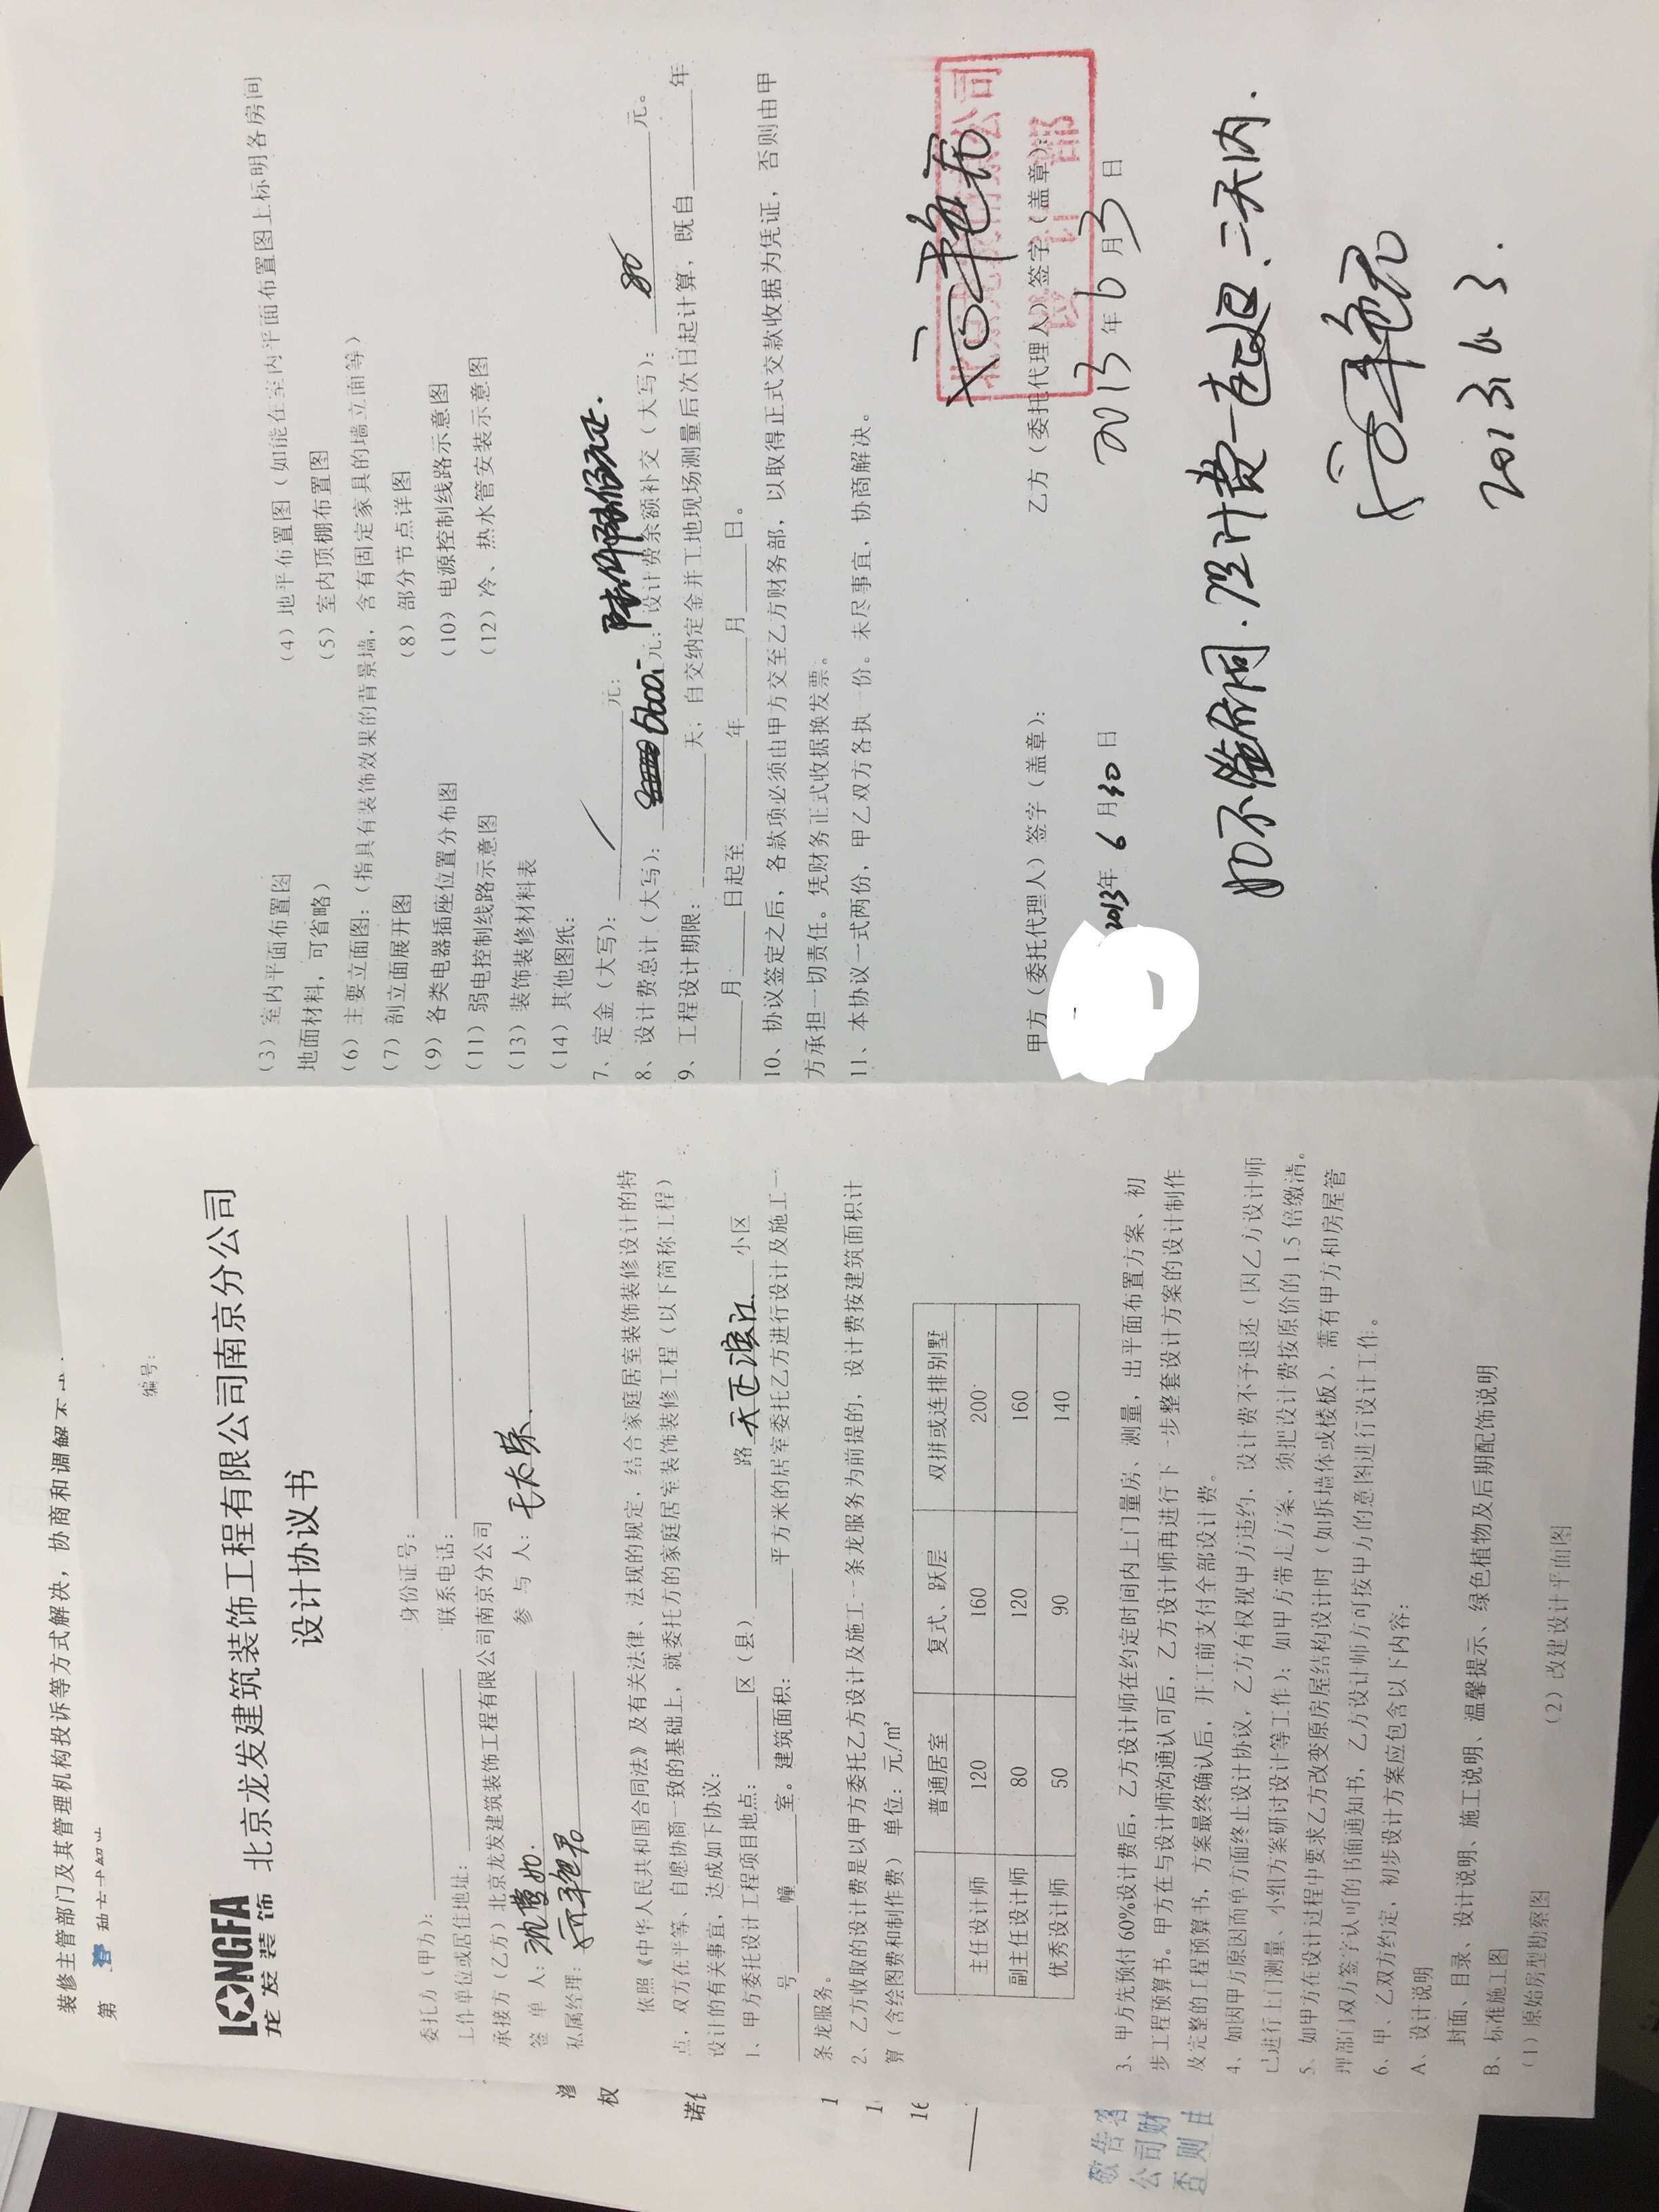 装修主管部门及其管理机构投诉等方式解决，协商和调解不
第
编号：
LONGFA
龙发装饰
北京龙发建筑装饰工程有限公司南京分公司
设计协议书
委托方（甲方）：________ 身份证号：________
工作单位或居住地址：________ 联系电话：________
承接方（乙方）北京龙发建筑装饰工程有限公司南京分公司
签 单 人： 参 与 人：
私属经理：
依照《中华人民共和国合同法》及有关法律、法规的规定，结合家庭居室装饰装修设计的特
点，双方在平等、自愿协商一致的基础上，就委托方的家庭居室装饰装修工程（以下简称工程）
设计的有关事宜，达成如下协议：
1、甲方委托设计工程项目地点：____区（县）________路 天正滨江 小区
____号____幢____室。建筑面积：____平方米的居室委托乙方进行设计及施工一
条龙服务。
2、乙方收取的设计费是以甲方委托乙方设计及施工一条龙服务为前提的，设计费按建筑面积计
算（含绘图费和制作费）单位：元/m²
普通居室 复式、跃层 双拼或连排别墅
主任设计师 120 160 200
副主任设计师 80 120 160
优秀设计师 50 90 140
3、甲方先预付60%设计费后，乙方设计师在约定时间内上门量房、测量，出平面布置方案、初
步工程预算书。甲方在与设计师沟通认可后，乙方设计师再进行下一步整套设计方案的设计制作
及完整的工程预算书，方案最终确认后，开工前支付全部设计费。
4、如因甲方原因而单方面终止设计协议，乙方有权视甲方违约，设计费不予退还（因乙方设计师
已进行上门测量、小组方案研讨设计等工作）；如甲方带走方案，须把设计费按原价的1.5倍缴清。
5、如甲方在设计过程中要求乙方改变原房屋结构设计时（如拆墙体或楼板），需有甲方和房屋管
理部门双方签字认可的书面通知书，乙方设计师方可按甲方的意图进行设计工作。
6、甲、乙双方约定，初步设计方案应包含以下内容：
A、设计说明
封面、目录、设计说明、施工说明、温馨提示、绿色植物及后期配饰说明
B、标准施工图
（1）原始房型勘察图 （2）改建设计平面图
权
诺
1
1
16
敬告
公司财
否则
（3）室内平面布置图 （4）地平布置图（如能在室内平面布置图上标明各房间
地面材料，可省略） （5）室内顶棚布置图
（6）主要立面图：（指具有装饰效果的背景墙，含有固定家具的墙立面等）
（7）剖立面展开图 （8）部分节点详图
（9）各类电器插座位置分布图 （10）电源控制线路示意图
（11）弱电控制线路示意图 （12）冷、热水管安装示意图
（13）装饰装修材料表
（14）其他图纸：
7、定金（大写）：________元；
8、设计费总计（大写）： 6600 元；设计费余额补交（大写）：________元。
9、工程设计期限：____天；自交纳定金并工地现场测量后次日起计算，既自____年
____月____日起至____年____月____日。
10、协议签定之后，各款项必须由甲方交至乙方财务部，以取得正式交款收据为凭证，否则由甲
方承担一切责任。凭财务正式收据换发票。
11、本协议一式两份，甲乙双方各执一份。未尽事宜，协商解决。
甲方（委托代理人）签字（盖章）： 乙方（委托代理人）签字（盖章）：
2013年6月30日 2013年6月3日
如不签合同.设计费一起退.三天内.
2013.6.3.